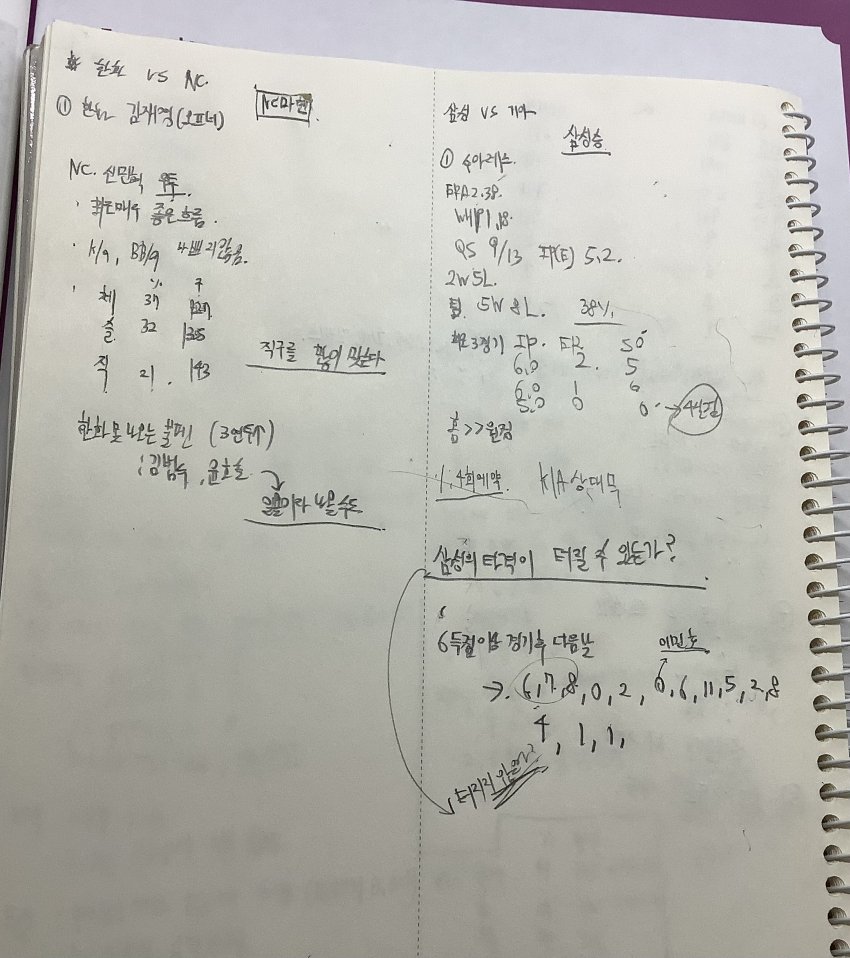 # 한화 vs NC.
NC마핸
① 한화 김재영(오프너)
NC. 신민혁 우투.
· 최근매우 좋은흐름.
· K/9, BB/9 4배 리그높음.
% 구
체 37
슬 32
직 21. 143
직구를 많이 맞는다
한화 못 나오는 불펜 (3연투↑)
: 김범수, 윤호솔
삼성 vs 기아
삼성승
① 수아레즈.
ERA 2.38.
WHIP 1.18.
QS 9/13 IP(E) 5.2.
2W 5L.
팀 5W 8L. 38%.
최근3경기 IP. ER SO
6.0 2. 5
6.0 1 6
5.0 0 0 → 4실점
홈>>원정
1, 4회에약. KIA상대무
삼성의 타격이 터질 수 있는가?
6득점이상 경기후 다음날
→. 6,7,8,0,2,0,6,11,5,2,8
4, 1, 1,
터지지 않을까?